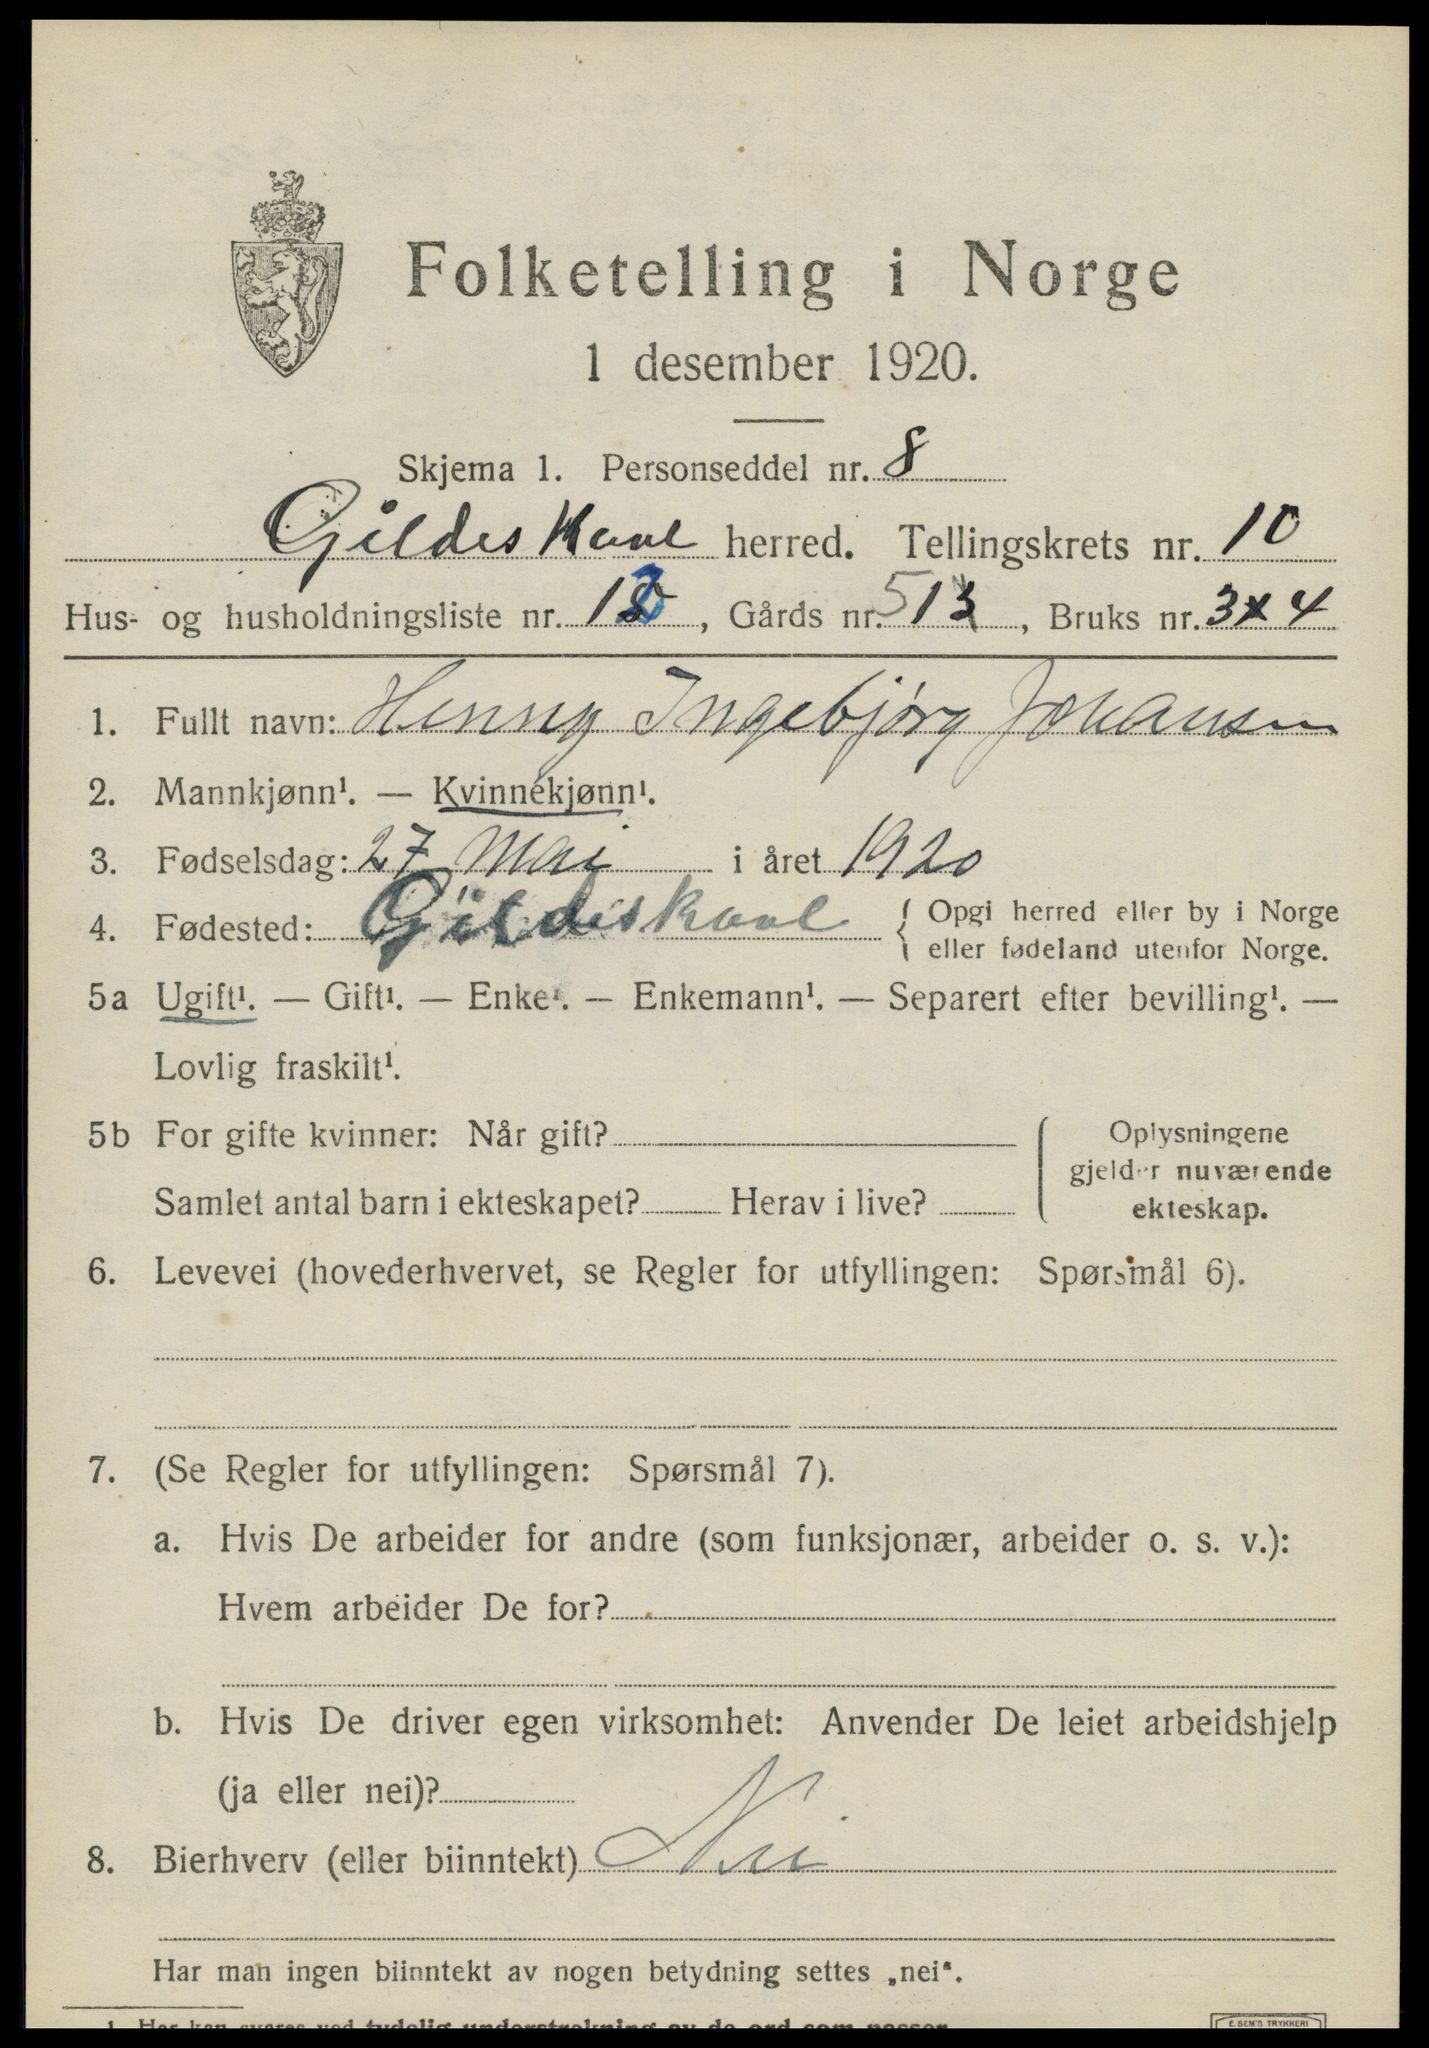 Folketelling i Norge
1 desember 1920.
Skjema 1. Personseddel nr. 8
Gildeskaal herred. Tellingskrets nr. 10
Hus- og husholdningsliste nr. 12, Gårds nr. 51, Bruks nr. 3 x 4
1. Fullt navn: Henny Ingebjørg Johansen
2. Mannkjønn¹. — Kvinnekjønn¹.
3. Fødselsdag: 27 Mai i året 1920
4. Fødested: Gildeskaal { Opgi herred eller by i Norge
eller fødeland utenfor Norge.
5a Ugift¹. — Gift¹. — Enke¹. — Enkemann¹. — Separert efter bevilling¹. —
Lovlig fraskilt¹.
5b For gifte kvinner: Når gift?
Samlet antal barn i ekteskapet? Herav i live?
Oplysningene
gjelder nuværende
ekteskap.
6. Levevei (hovederhvervet, se Regler for utfyllingen: Spørsmål 6).
7. (Se Regler for utfyllingen: Spørsmål 7).
a. Hvis De arbeider for andre (som funksjonær, arbeider o. s. v.):
Hvem arbeider De for?
b. Hvis De driver egen virksomhet: Anvender De leiet arbeidshjelp
(ja eller nei)?
8. Bierhverv (eller biinntekt) Nei
Har man ingen biinntekt av nogen betydning settes „nei“.
1 Her kan svares ved tydelig understrekning av de ord som passer.
E. SEM'S TRYKKERI